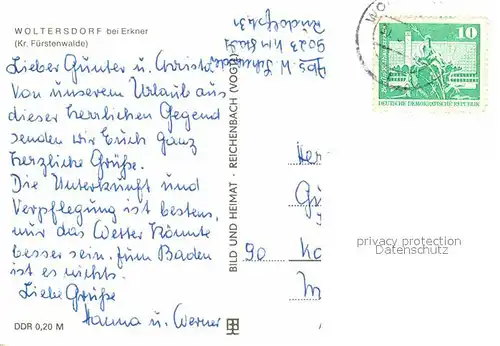 WOLTERSDORF bei Erkner
(Kr. Fürstenwalde)
Lieber Günter u. Christa
Von unserem Urlaub aus
dieser herrlichen Gegend
senden wir Euch ganz
herzliche Grüße.
Die Unterkunft und
Verpflegung ist bestens,
nur das Wetter könnte
besser sein. Zum Baden
ist es nichts.
Liebe Grüße
Hanna u. Werner
DDR 0,20 M
BILD UND HEIMAT · REICHENBACH (VOGTL)
Abs. W.
9023
WO
10
DEUTSCHE DEMOKRATISCHE REPUBLIK
90
privacy protection
Datenschutz